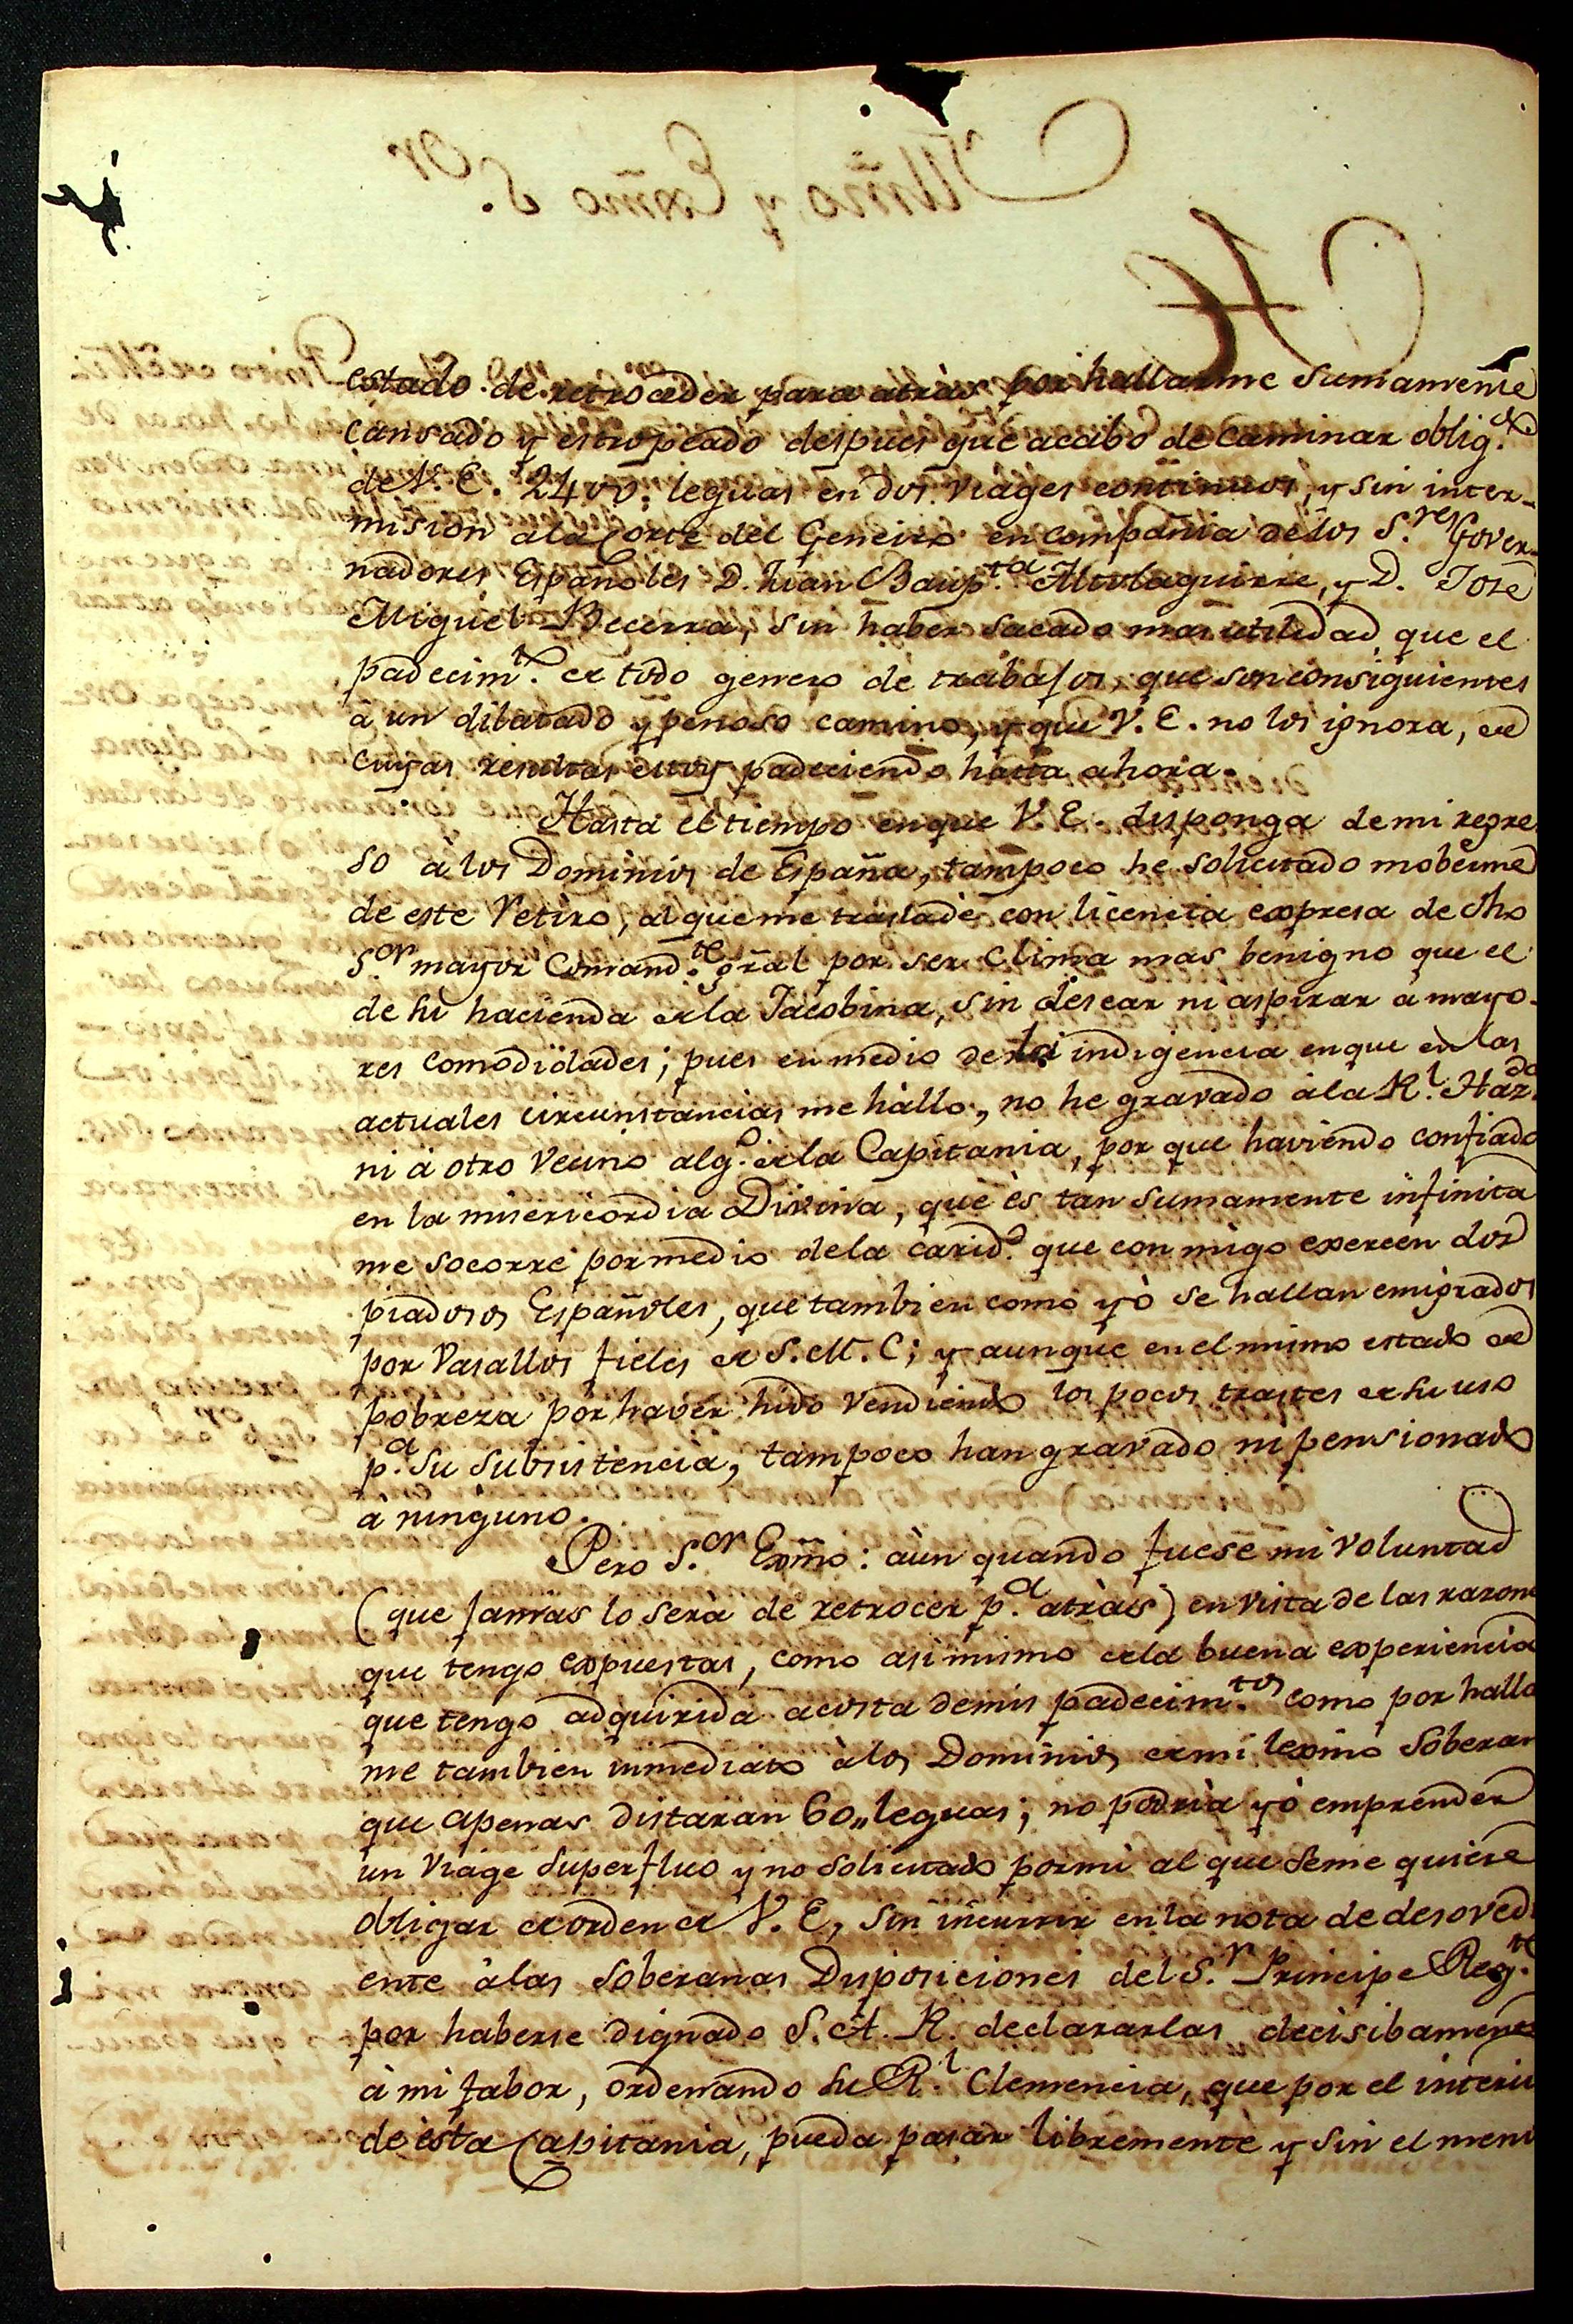 estado de retroceder para atràs por hallarme Sumamente
Cansado y estropeado despues que acabo de Caminar oblig.do
de V. E. 2400. leguas en dos Viages continuos, y sin inter-
mision ala Corte del Geneiro en Compañia delos S.res Gover-
nadores Españoles D. Juan Baup.ta Altolaguirre, y D. José
Miguel Becerra, sin haber sacado mas utilidad, que el
padecim.to de todo genero de trabajos, que son consiguientes
à un dilatado y penoso camino, y que V. E. no los ignora, de
cuyas resultas estoy padeciendo hasta ahora.
Hasta el tiempo en que V. E. disponga de mi regre
so à los Dominios de España, tampoco he solicitado moberme
de este Retiro, al que me trasladè con licencia expresa de dho
S.or mayor Comand.te gral por ser Clima mas benigno que el
de su hacienda de la Jacobina, sin desear ni aspirar à mayo-
res comodidades; pues en medio de la indigencia en que en las
actuales circunstancias me hallo, no he gravado àla R.l Haz.da
ni à otro Vecino alg.o de la Capitania, por que haviendo confiado
en la misericordia Divina, que ès tan sumamente infinita
me socorre por medio dela carid.d que con migo exercen dos
piadosos Españoles, que tambien como yò se hallan emigrados
por Vasallos fieles de S. M. C; y aunque en el mismo estado de
pobreza por haver hido Vendiendo los pocos trastes de su uso
p.a su subsistencia, tampoco han gravado ni pensionado
à ninguno.
Pero S.or Exmo: àun quando fuese mi Voluntad
(que jamas lo serà de retrocer p.a atràs) en vista de las razone
que tengo expuestas, como asimismo dela buena experiencia
que tengo adquirida acosta demis padecim.tos como por halla
me tambien inmediato àlos Dominios de mi lexmo Soberan
que apenas distaran 60,, leguas; no podrìa yò emprender
un Viage superfluo y no solicitado por mi al que seme quiere
obligar de orden de V. E, sin incurrir en la nota de desoved
ente àlas Soberanas Disposiciones del S.r Principe Reg.te
por haberse dignado S. A. R. declararlas decisibamente
à mi fabor, ordenando su R.l Clemencia, que por el interi
de èsta Capitania, pueda pasar libremente y sin el men